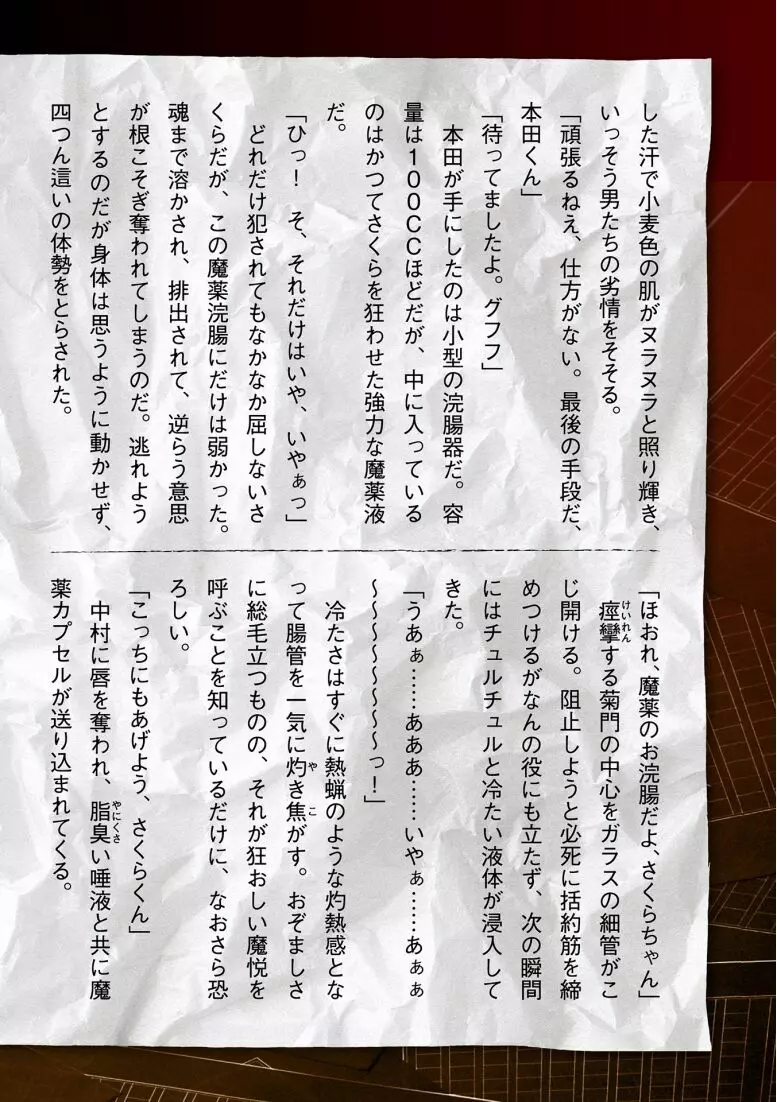 した汗で小麦色の肌がヌラヌラと照り輝き、
いっそう男たちの劣情をそそる。
「頑張るねえ、仕方がない。最後の手段だ、
本田くん」
「待ってましたよ。グフフ」
本田が手にしたのは小型の浣腸器だ。容
量は100CCほどだが、中に入っている
のはかつてさくらを狂わせた強力な魔薬液
だ。
「ひっ！　そ、それだけはいや、いやぁっ」
どれだけ犯されてもなかなか屈しないさ
くらだが、この魔薬浣腸にだけは弱かった。
魂まで溶かされ、排出されて、逆らう意思
が根こそぎ奪われてしまうのだ。逃れよう
とするのだが身体は思うように動かせず、
四つん這いの体勢をとらされた。
「ほおれ、魔薬のお浣腸だよ、さくらちゃん」
痙攣する菊門の中心をガラスの細管がこ
じ開ける。阻止しようと必死に括約筋を締
めつけるがなんの役にも立たず、次の瞬間
にはチュルチュルと冷たい液体が浸入して
きた。
「うあぁ……あああ……いやぁ……あぁぁ
～～～～～～～～っ！」
冷たさはすぐに熱蝋のような灼熱感とな
って腸管を一気に灼き焦がす。おぞましさ
に総毛立つものの、それが狂おしい魔悦を
呼ぶことを知っているだけに、なおさら恐
ろしい。
「こっちにもあげよう、さくらくん」
中村に唇を奪われ、脂臭い唾液と共に魔
薬カプセルが送り込まれてくる。